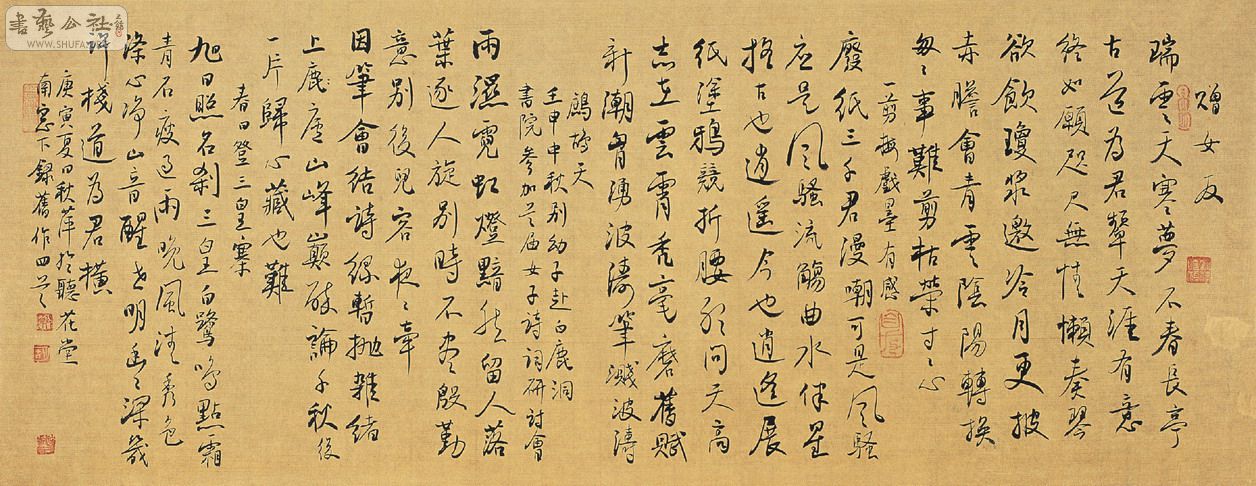 書藝公社
WWW.SHUFA
贈女友
瑞雪天寒夢不春長亭
古道為君顰天涯有意
終如願咫尺無情懶奏琴
欲飲瓊漿邀冷月更披
赤膽會青雲陰陽轉換
匆匆事難剪枯榮寸寸心
一剪梅 戲墨有感
廢紙三千君漫嘲可是風騷
應是風騷流觴曲水伴星
搖古也逍遙今也逍遙展
紙塗鴉競折腰欲問天高
志在雲霄禿毫磨舊賦
新潮胸湧波濤筆濺波濤
鷓鴣天
壬申中秋別幼子赴白鹿洞
書院參加首屆女子詩詞研討會
雨濕霓虹燈黯然留人落
葉逐人旋別時不盡殷勤
意別後兒容夜夜牽
因筆會結詩緣暫拋雜緒
上鹿廬山峰巔敲論千秋後
一片歸心藏也難
春日登三皇寨
旭日照名剎三皇白鷺鳴點霜
青石瘦過雨晚風清秀色
滌心淨山音醒世明幽幽深幾
許棧道為君橫
庚寅夏日秋萍於聽花堂
南窗下錄舊作四首